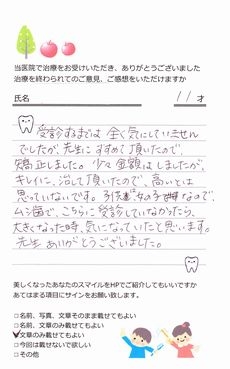 当医院で治療をお受けいただき、ありがとうございました
治療を終わられてのご意見、ご感想をいただけますか
氏名 11才
受診するまでは全く気にしていませせん
でしたが、先生にすすめて頂いたので、
矯正しました。少々金額はしましたが、
キレイに、治して頂いたので、高いとは
思っていないです。子供が女の子なので、
ムシ歯で、こちらに受診していなかったら、
大きくなった時、気になっていたと思います。
先生ありがとうございました。
美しくなったあなたのスマイルをHPでご紹介してもいいですか
あてはまる項目にサインをお願い致します。
□名前、写真、文章そのまま載せてもよい
□名前、文章のみ載せてもよい
□文章のみ載せてもよい
□今回は載せないで欲しい
□その他